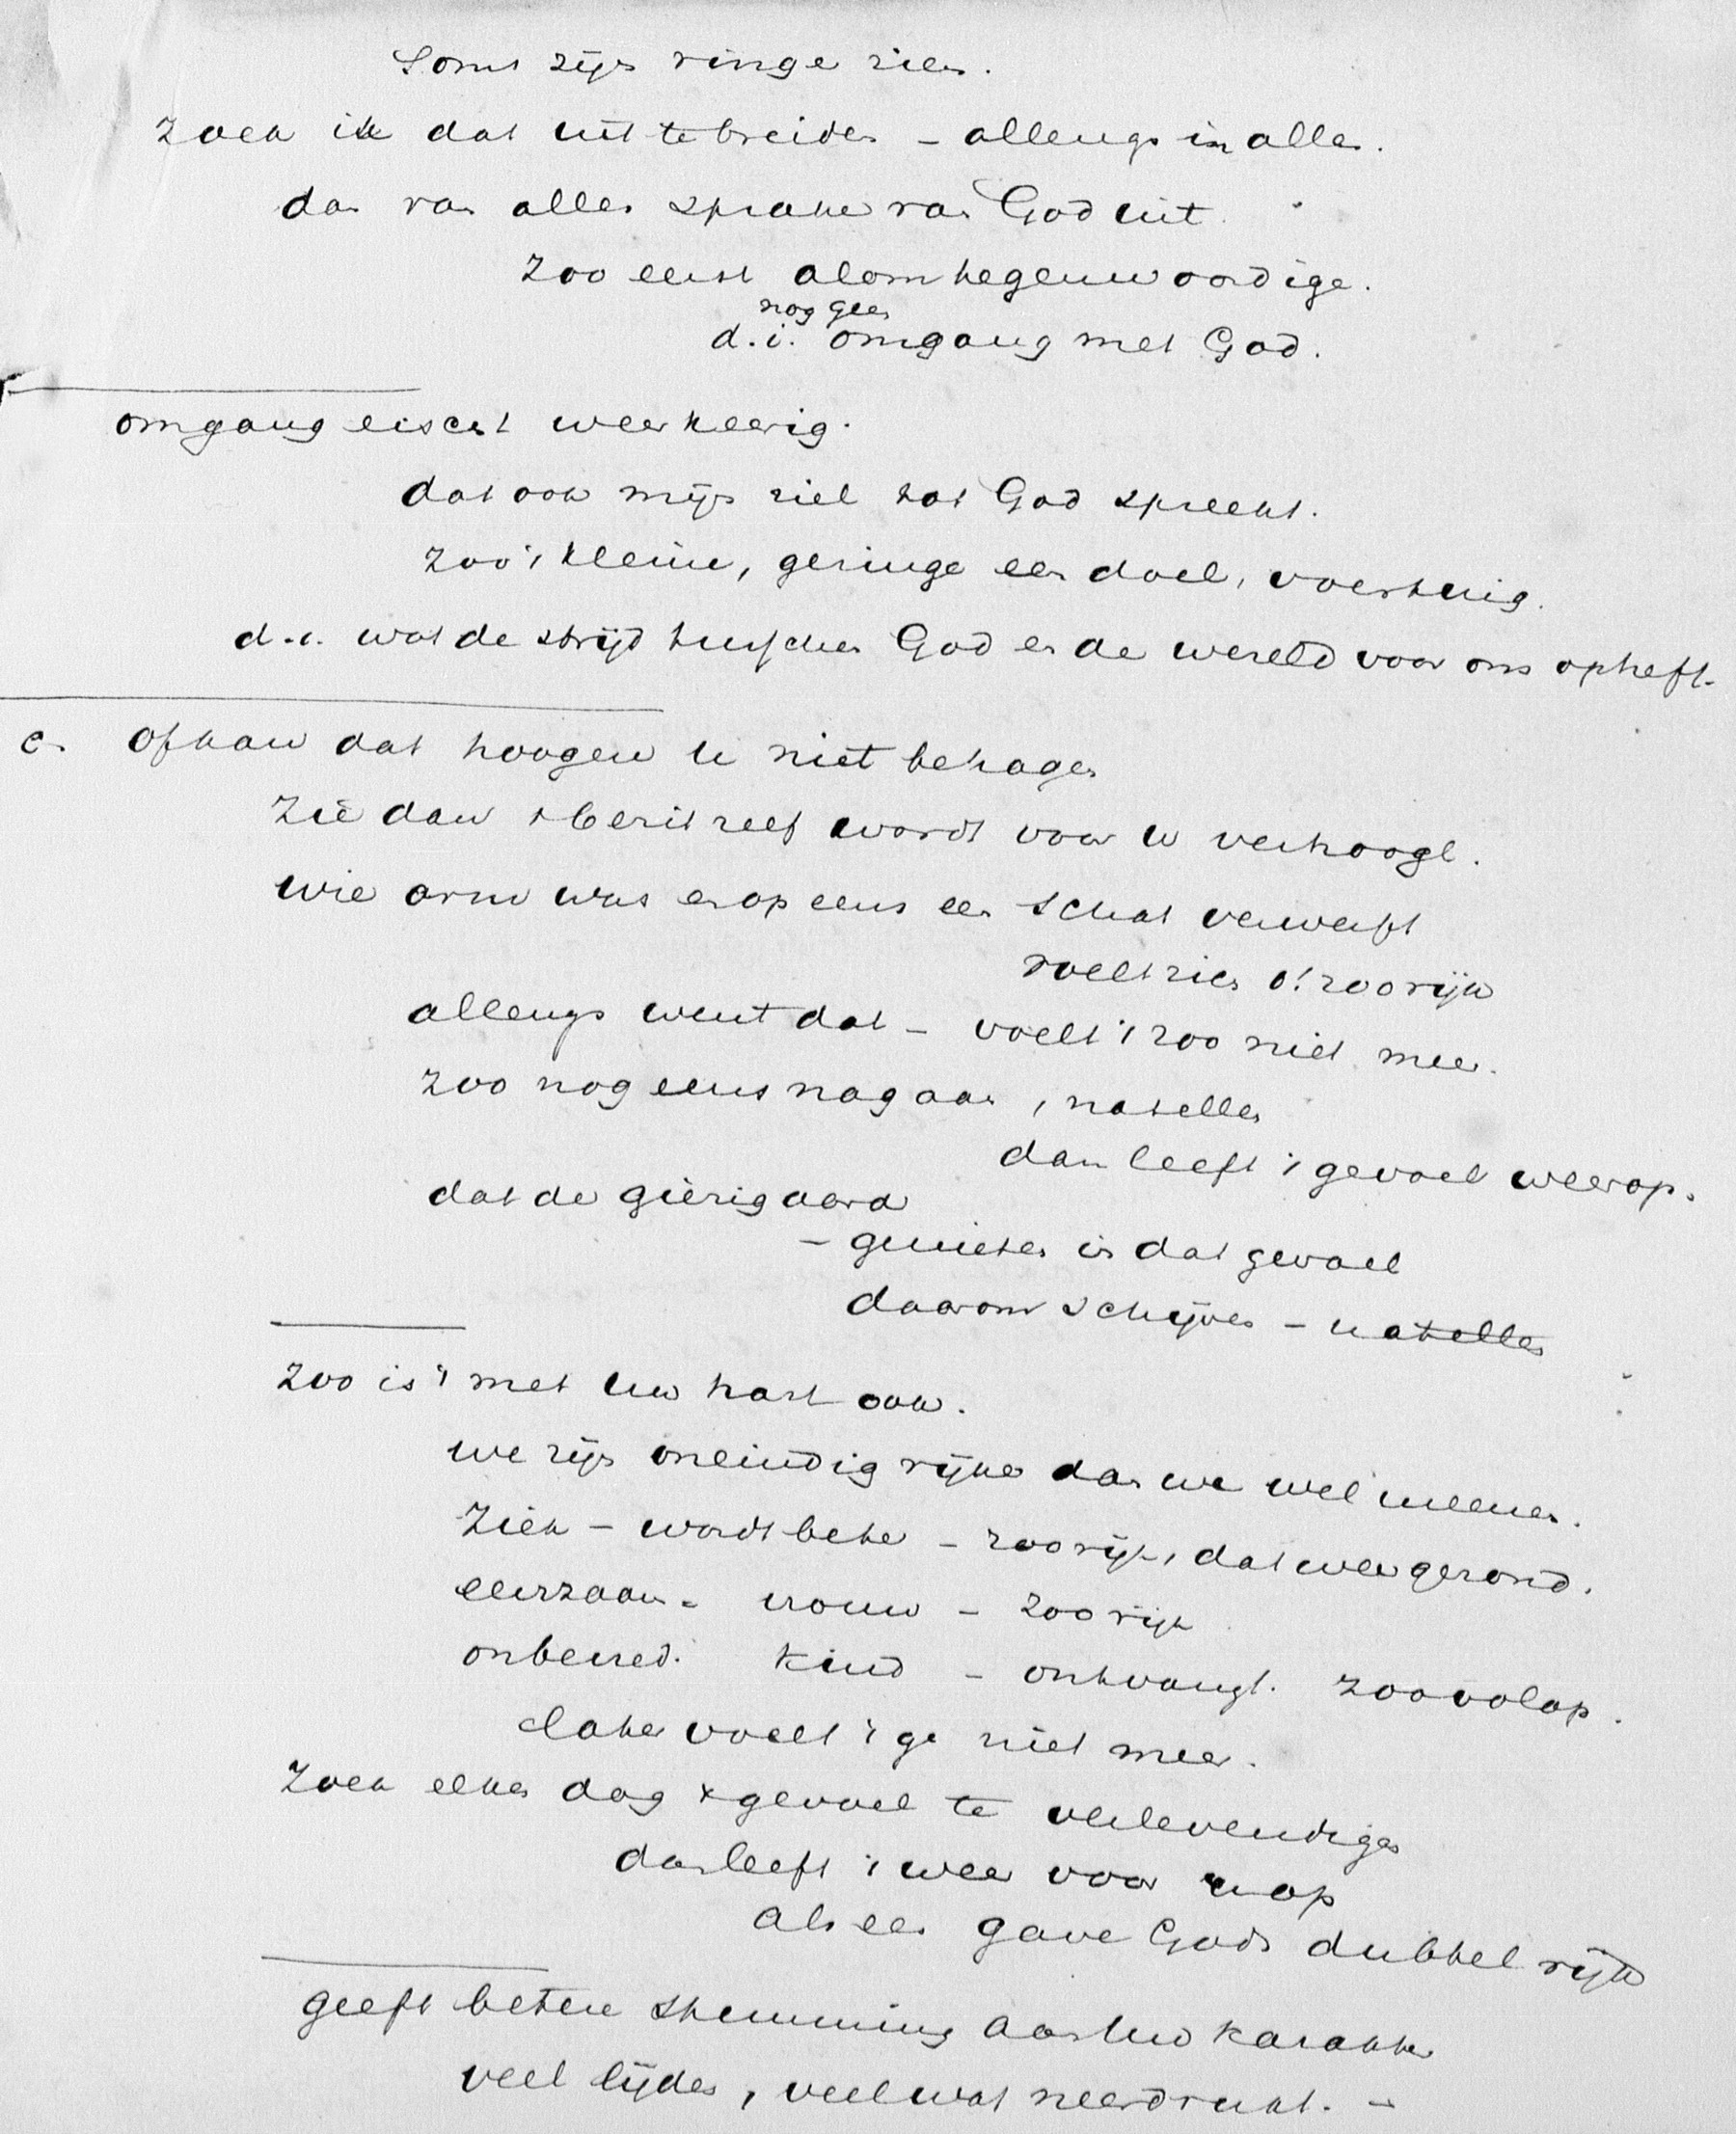 Soms zijn vinger zien.
Zoek ik dat uit te breiden - allengs in alles.
dan van alles sprake van God uit.
Zoo eerst alomtegenwoordige.
nog geen
d.i. omgang met God.
omgang eischt weerkeerig.
dat ook mijn ziel tot God spreekt.
Zoo 't kleine, geringe een doel, voertuig.
d.i. wat de strijd tusschen God en de wereld voor ons opheft.
c. Of kan dat hoogere u niet behagen
Zie dan 't bezit zelf wordt voor u verhoogd.
wie arm was en opeens een schat verwerft
voelt zich o! zoo rijk
allengs went dat - voelt 't zoo niet meer.
Zoo nog eens nagaan, natellen
dan leeft 't gevoel weer op.
dat de gierigaard
- genieten in dat gevoel
daarom schijven - natellen
Zoo is 't met uw hart ook.
we zijn oneindig rijker dan we wel meenen.
Ziek - wordt beter - zoo rijk, dat weer gezond.
eenzaam - vrouw - zoo rijk
onbevred. kind - ontvangt. zoo volop.
Later voelt 't ge niet meer.
Zoek elken dag 't gevoel te verlevendigen
dan leeft 't weer voor u op
als een gave Gods dubbel rijk
geeft betere stemming aan uw karakter
veel lijden, veel wat neerdrukt. -